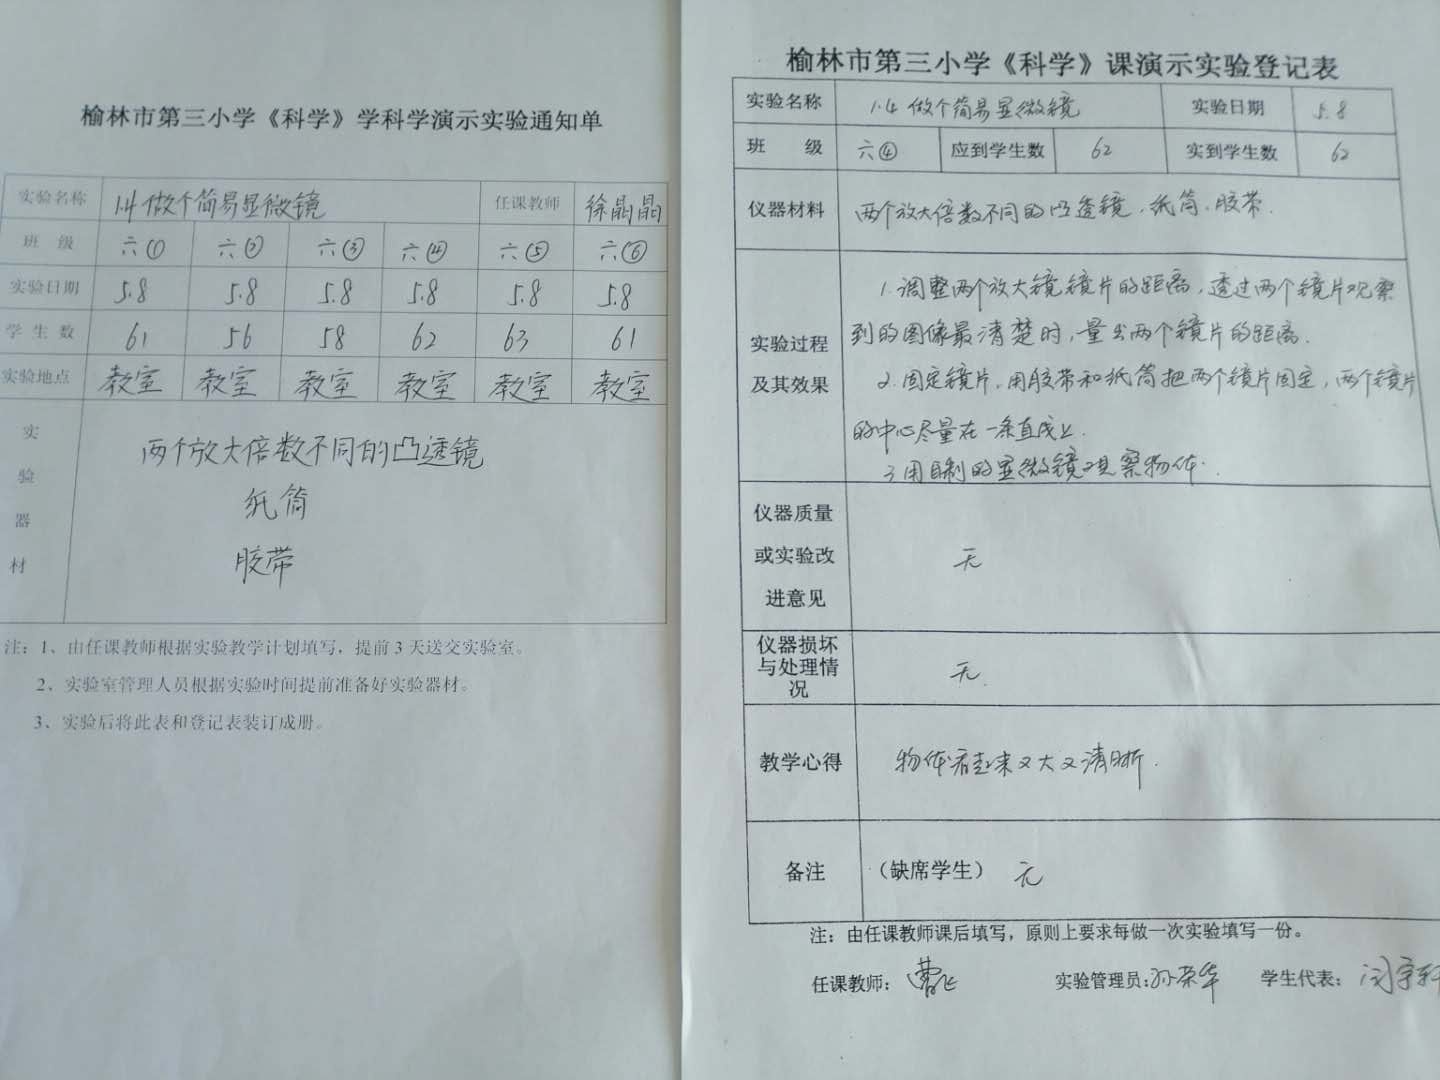 榆林市第三小学《科学》学科学演示实验通知单
实验名称 1.4 做个简易显微镜 任课教师 徐晶晶
班 级 六① 六② 六③ 六④ 六⑤ 六⑥
实验日期 5.8 5.8 5.8 5.8 5.8 5.8
学 生 数 61 56 58 62 63 61
实验地点 教室 教室 教室 教室 教室 教室
实验器材
两个放大倍数不同的凸透镜
纸筒
胶带
注：1、由任课教师根据实验教学计划填写，提前 3 天送交实验室。
2、实验室管理人员根据实验时间提前准备好实验器材。
3、实验后将此表和登记表装订成册。
榆林市第三小学《科学》课演示实验登记表
实验名称 1.4 做个简易显微镜 实验日期 5.8
班 级 六④ 应到学生数 62 实到学生数 62
仪器材料 两个放大倍数不同的凸透镜、纸筒、胶带.
实验过程
及其效果
1.调整两个放大镜镜片的距离，透过两个镜片观察
到的图像最清楚时，量出两个镜片的距离.
2.固定镜片，用胶带和纸筒把两个镜片固定，两个镜片
的中心尽量在一条直线上.
3.用自制的显微镜观察物体.
仪器质量
或实验改
进意见
无
仪器损坏
与处理情
况
无.
教学心得 物体看起来又大又清晰.
备注 （缺席学生） 无
注：由任课教师课后填写，原则上要求每做一次实验填写一份。
任课教师：曹飞 实验管理员：孙荣华 学生代表：闫宇轩